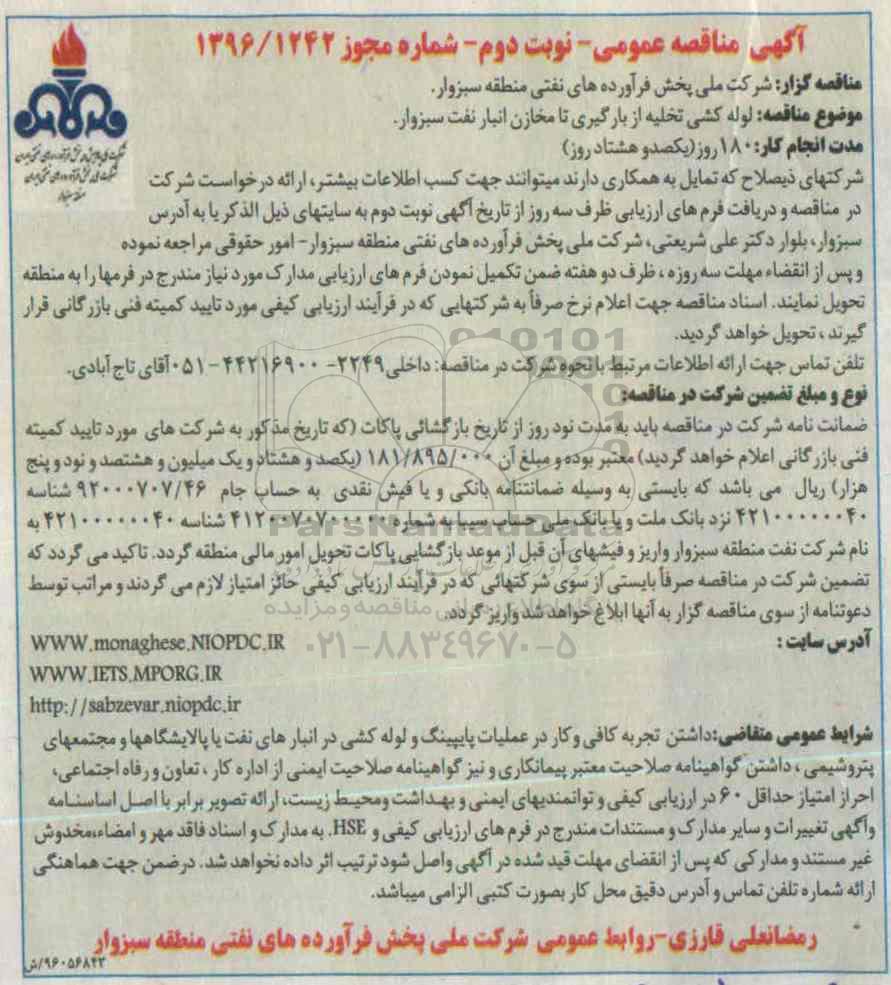 آگهی مناقصه عمومی- نوبت دوم- شماره مجوز ۱۳۹۶/۱۲۴۲
مناقصه گزار: شرکت ملی پخش فرآورده های نفتی منطقه سبزوار.
موضوع مناقصه: لوله کشی تخلیه از بارگیری تا مخازن انبار نفت سبزوار.
مدت انجام کار: ۱۸۰ روز(یکصدو هشتاد روز)
شرکتهای ذیصلاح که تمایل به همکاری دارند میتوانند جهت کسب اطلاعات بیشتر، ارائه درخواست شرکت
در مناقصه و دریافت فرم های ارزیابی ظرف سه روز از تاریخ آگهی نوبت دوم به سایتهای ذیل الذکر یا به آدرس
سبزوار، بلوار دکتر علی شریعتی، شرکت ملی پخش فرآورده های نفتی منطقه سبزوار- امور حقوقی مراجعه نموده
و پس از انقضاء مهلت سه روزه ، ظرف دو هفته ضمن تکمیل نمودن فرم های ارزیابی مدارک مورد نیاز مندرج در فرمها را به منطقه
تحویل نمایند. اسناد مناقصه جهت اعلام نرخ صرفاً به شرکتهایی که در فرآیند ارزیابی کیفی مورد تایید کمیته فنی بازرگانی قرار
گیرند ، تحویل خواهد گردید.
تلفن تماس جهت ارائه اطلاعات مرتبط با نحوه شرکت در مناقصه: داخلی ۲۲۴۹- ۴۴۲۱۶۹۰۰ -۰۵۱ آقای تاج آبادی.
نوع و مبلغ تضمین شرکت در مناقصه:
ضمانت نامه شرکت در مناقصه باید به مدت نود روز از تاریخ بازگشائی پاکات (که تاریخ مذکور به شرکت های مورد تایید کمیته
فنی بازرگانی اعلام خواهد گردید) معتبر بوده و مبلغ آن ۱۸۱/۸۹۵/۰۰۰ (یکصد و هشتاد و یک میلیون و هشتصد و نود و پنج
هزار) ریال می باشد که بایستی به وسیله ضمانتنامه بانکی و یا فیش نقدی به حساب جام ۹۲۰۰۰۷۰۷/۴۶ شناسه
۴۲۱۰۰۰۰۰۰۰۴۰ نزد بانک ملت و یا بانک ملی حساب سیبا به شماره ۴۱۲۰۰۷۰۷۰۰۰۰۰ شناسه ۴۲۱۰۰۰۰۰۰۰۴۰ به
نام شرکت نفت منطقه سبزوار واریز و فیشهای آن قبل از موعد بازگشایی پاکات تحویل امور مالی منطقه گردد. تاکید می گردد که
تضمین شرکت در مناقصه صرفاً بایستی از سوی شرکتهائی که در فرآیند ارزیابی کیفی حائز امتیاز لازم می گردند و مراتب توسط
دعوتنامه از سوی مناقصه گزار به آنها ابلاغ خواهد شد واریز گردد.
آدرس سایت :
WWW.monaghese.NIOPDC.IR
WWW.IETS.MPORG.IR
http://sabzevar.niopdc.ir
شرایط عمومی متقاضی: داشتن تجربه کافی وکار در عملیات پایپینگ و لوله کشی در انبار های نفت یا پالایشگاهها و مجتمعهای
پتروشیمی ، داشتن گواهینامه صلاحیت معتبر پیمانکاری و نیز گواهینامه صلاحیت ایمنی از اداره کار ، تعاون و رفاه اجتماعی،
احراز امتیاز حداقل ۶۰ در ارزیابی کیفی و توانمندیهای ایمنی و بهداشت ومحیط زیست، ارائه تصویر برابر با اصل اساسنامه
وآگهی تغییرات و سایر مدارک و مستندات مندرج در فرم های ارزیابی کیفی و HSE. به مدارک و اسناد فاقد مهر و امضاء،مخدوش
غیر مستند و مدارکی که پس از انقضای مهلت قید شده در آگهی واصل شود ترتیب اثر داده نخواهد شد. درضمن جهت هماهنگی
ارائه شماره تلفن تماس و آدرس دقیق محل کار بصورت کتبی الزامی میباشد.
رمضانعلی قارزی-روابط عمومی شرکت ملی پخش فرآورده های نفتی منطقه سبزوار
۹۶۰۵۶۸۴۳/ش
ParsNamadData
۰۲۱-۸۸۳۴۹۶۷۰-۵